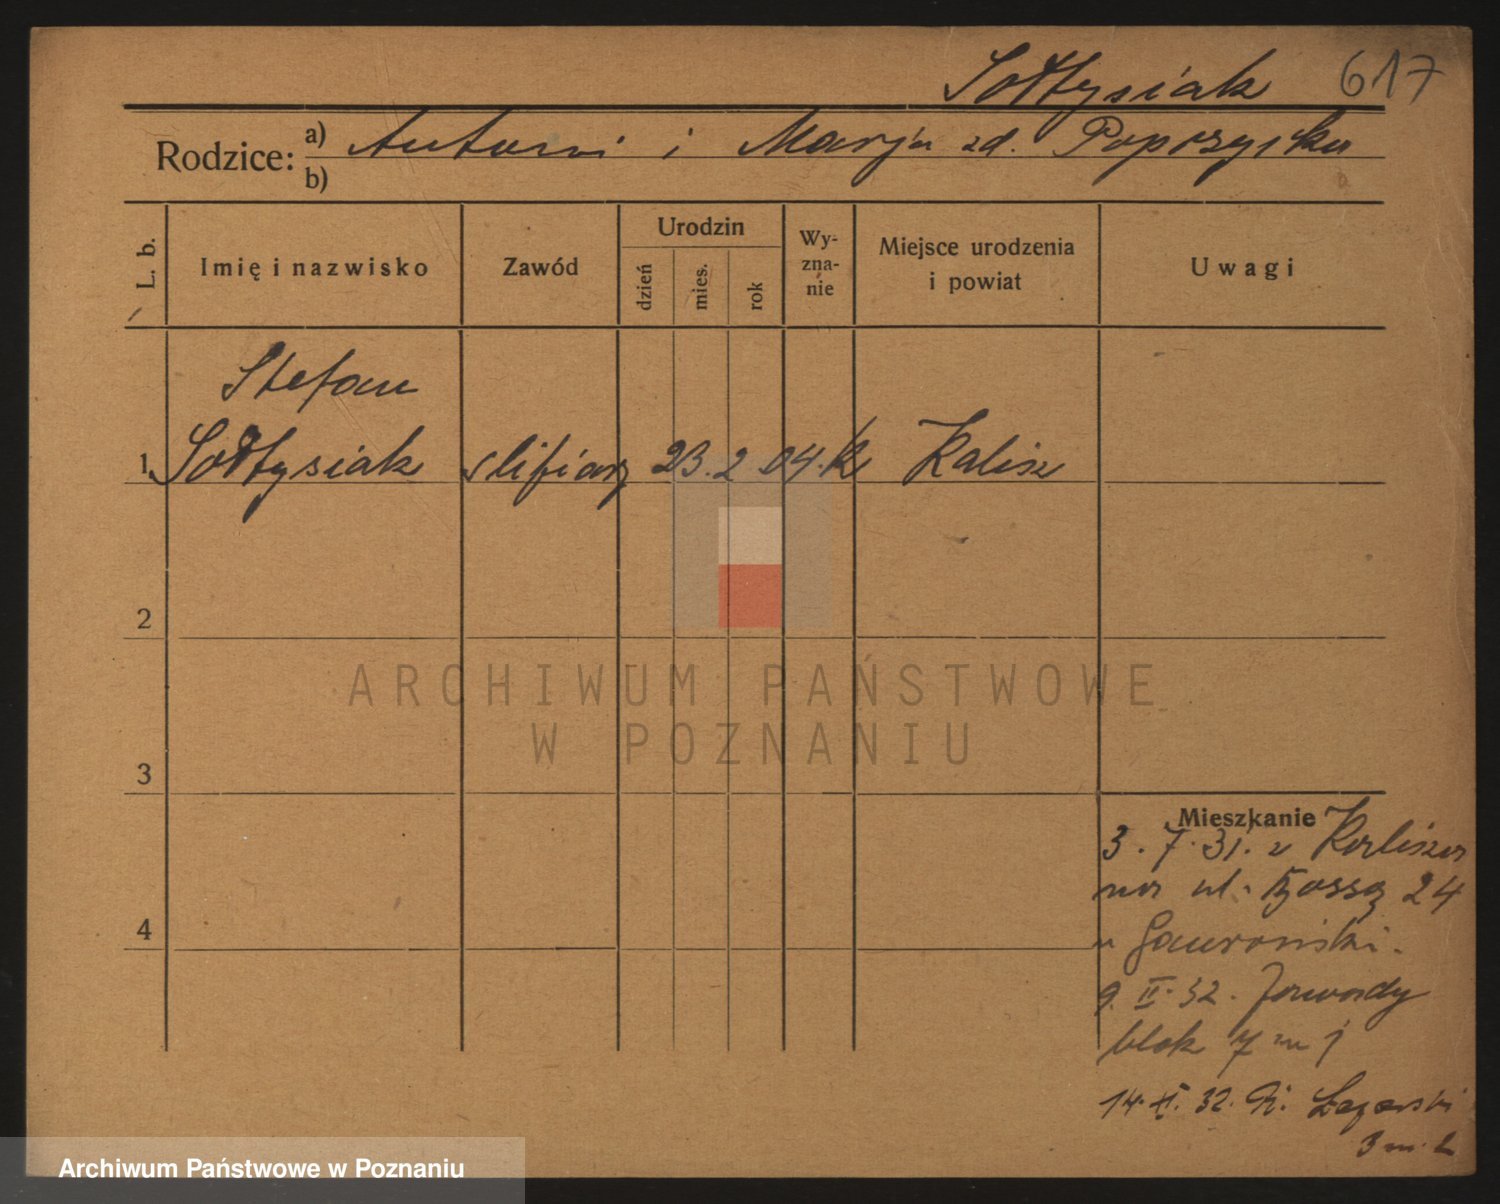 Sołtysiak 617
Rodzice: a) Antoni i Marja zd.
b)
L. b.
Imię i nazwisko
Zawód
Urodzin
dzień
mies.
rok
Wy-
zna-
nie
Miejsce urodzenia
i powiat
Uwagi
Stefan
1 Sołtysiak slifiarz 23. 2 04. k Kalisz
2
3
4
Mieszkanie
3. 7. 31. z Kalisza
na ul. 24
u Gawroński.
9. II. 32. Zawady
blok 7 m 1
14. 32. R. Łazarski
3 m. 2
ARCHIWUM PAŃSTWOWE
W POZNANIU
Archiwum Państwowe w Poznaniu